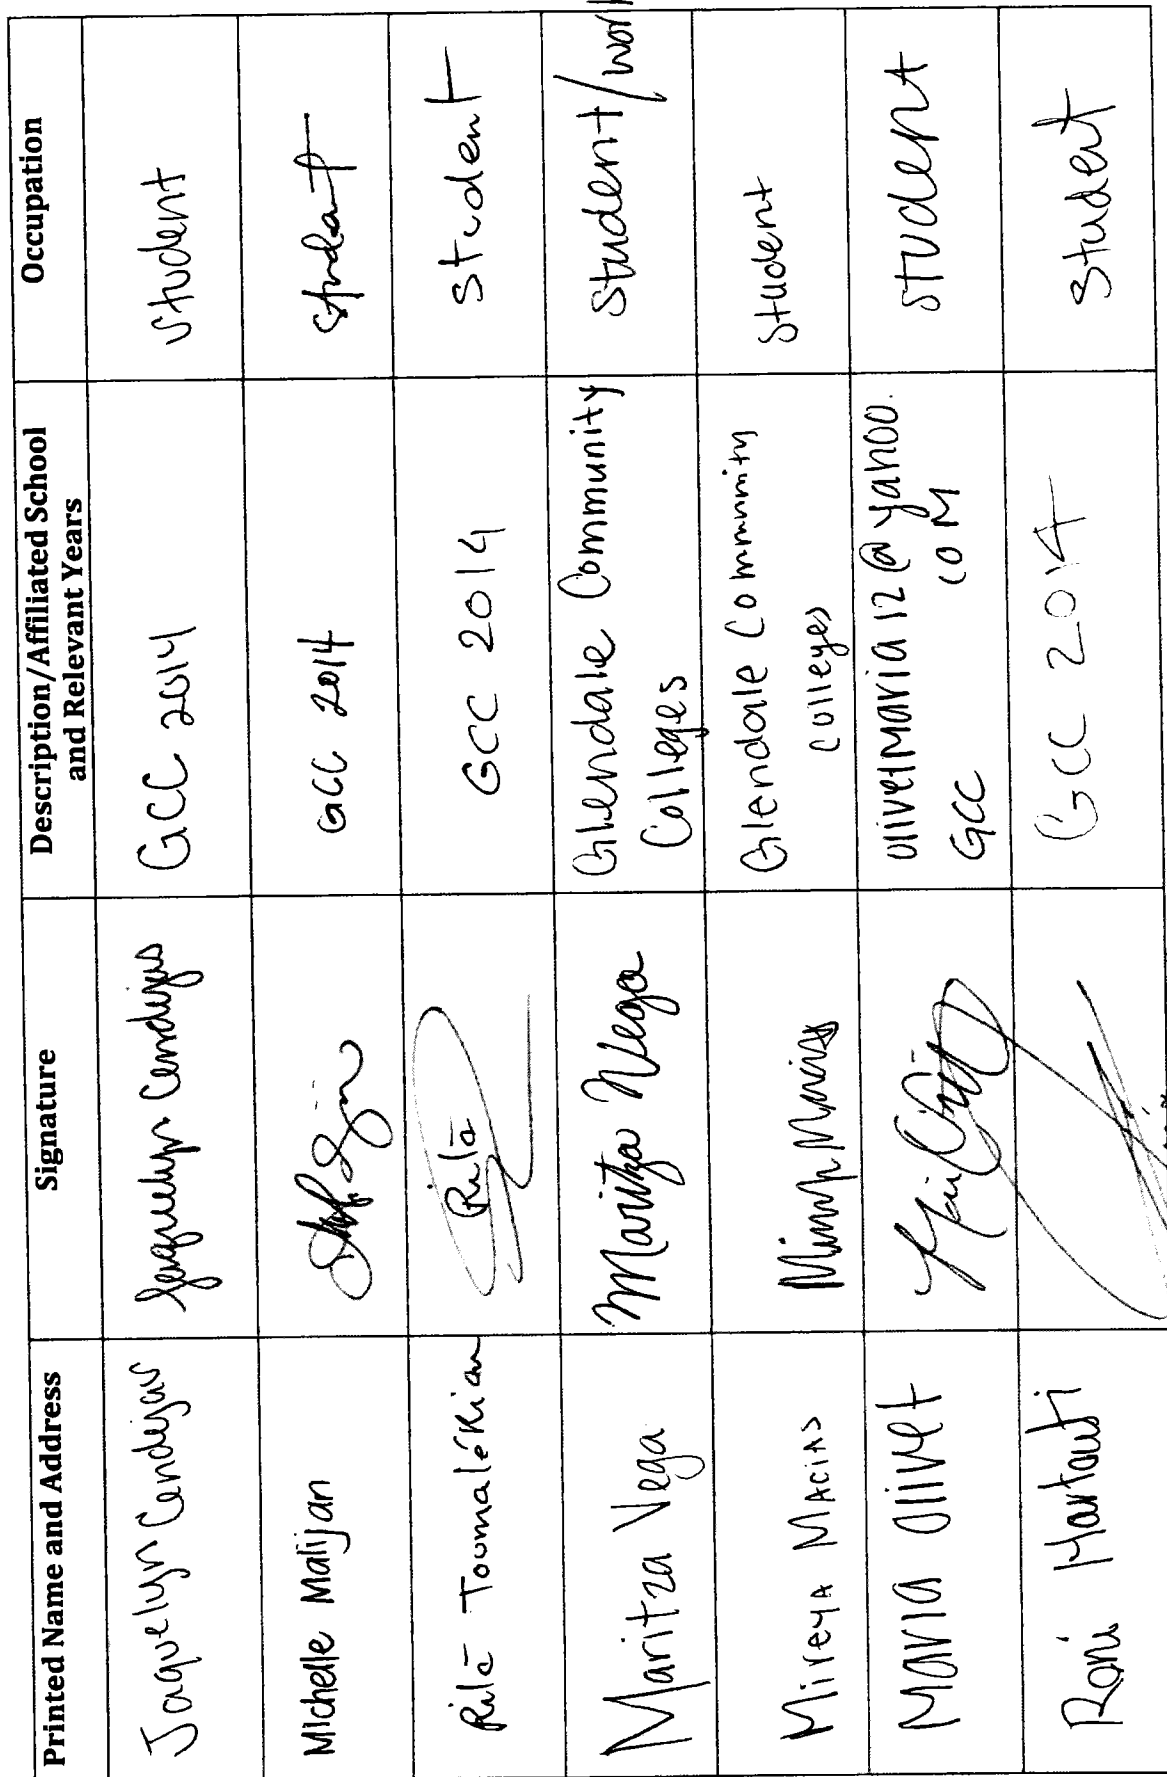 Printed Name and Address
Signature
Description/Affiliated School
and Relevant Years
Occupation
Jaquelyn Cendejas
Jaquelyn Cendejas
GCC 2014
student
Michelle Malijan
GCC 2014
student
Toumalékian
GCC 2014
student
Maritza Vega
Maritza Vega
Glendale Community
Colleges
student/
Mireya Macias
Glendale Community
Colleges
student
Maria Olivet
olivetmaria12@yahoo.
com
GCC
student
Roni
GCC 2014
student